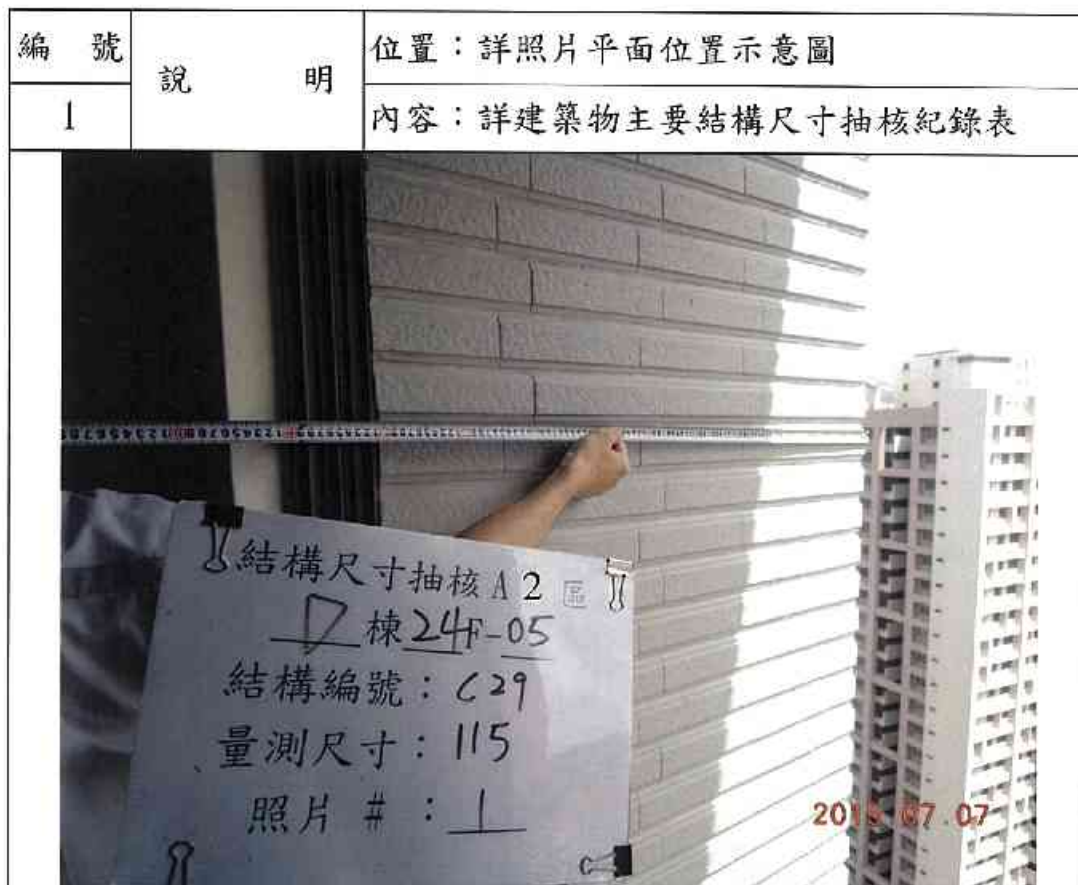 編 號
說 明
位置：詳照片平面位置示意圖
1
內容：詳建築物主要結構尺寸抽核紀錄表
結構尺寸抽核 A 2 區
D 棟 24F-05
結構編號：C29
量測尺寸：115
照片 #：1
07 07